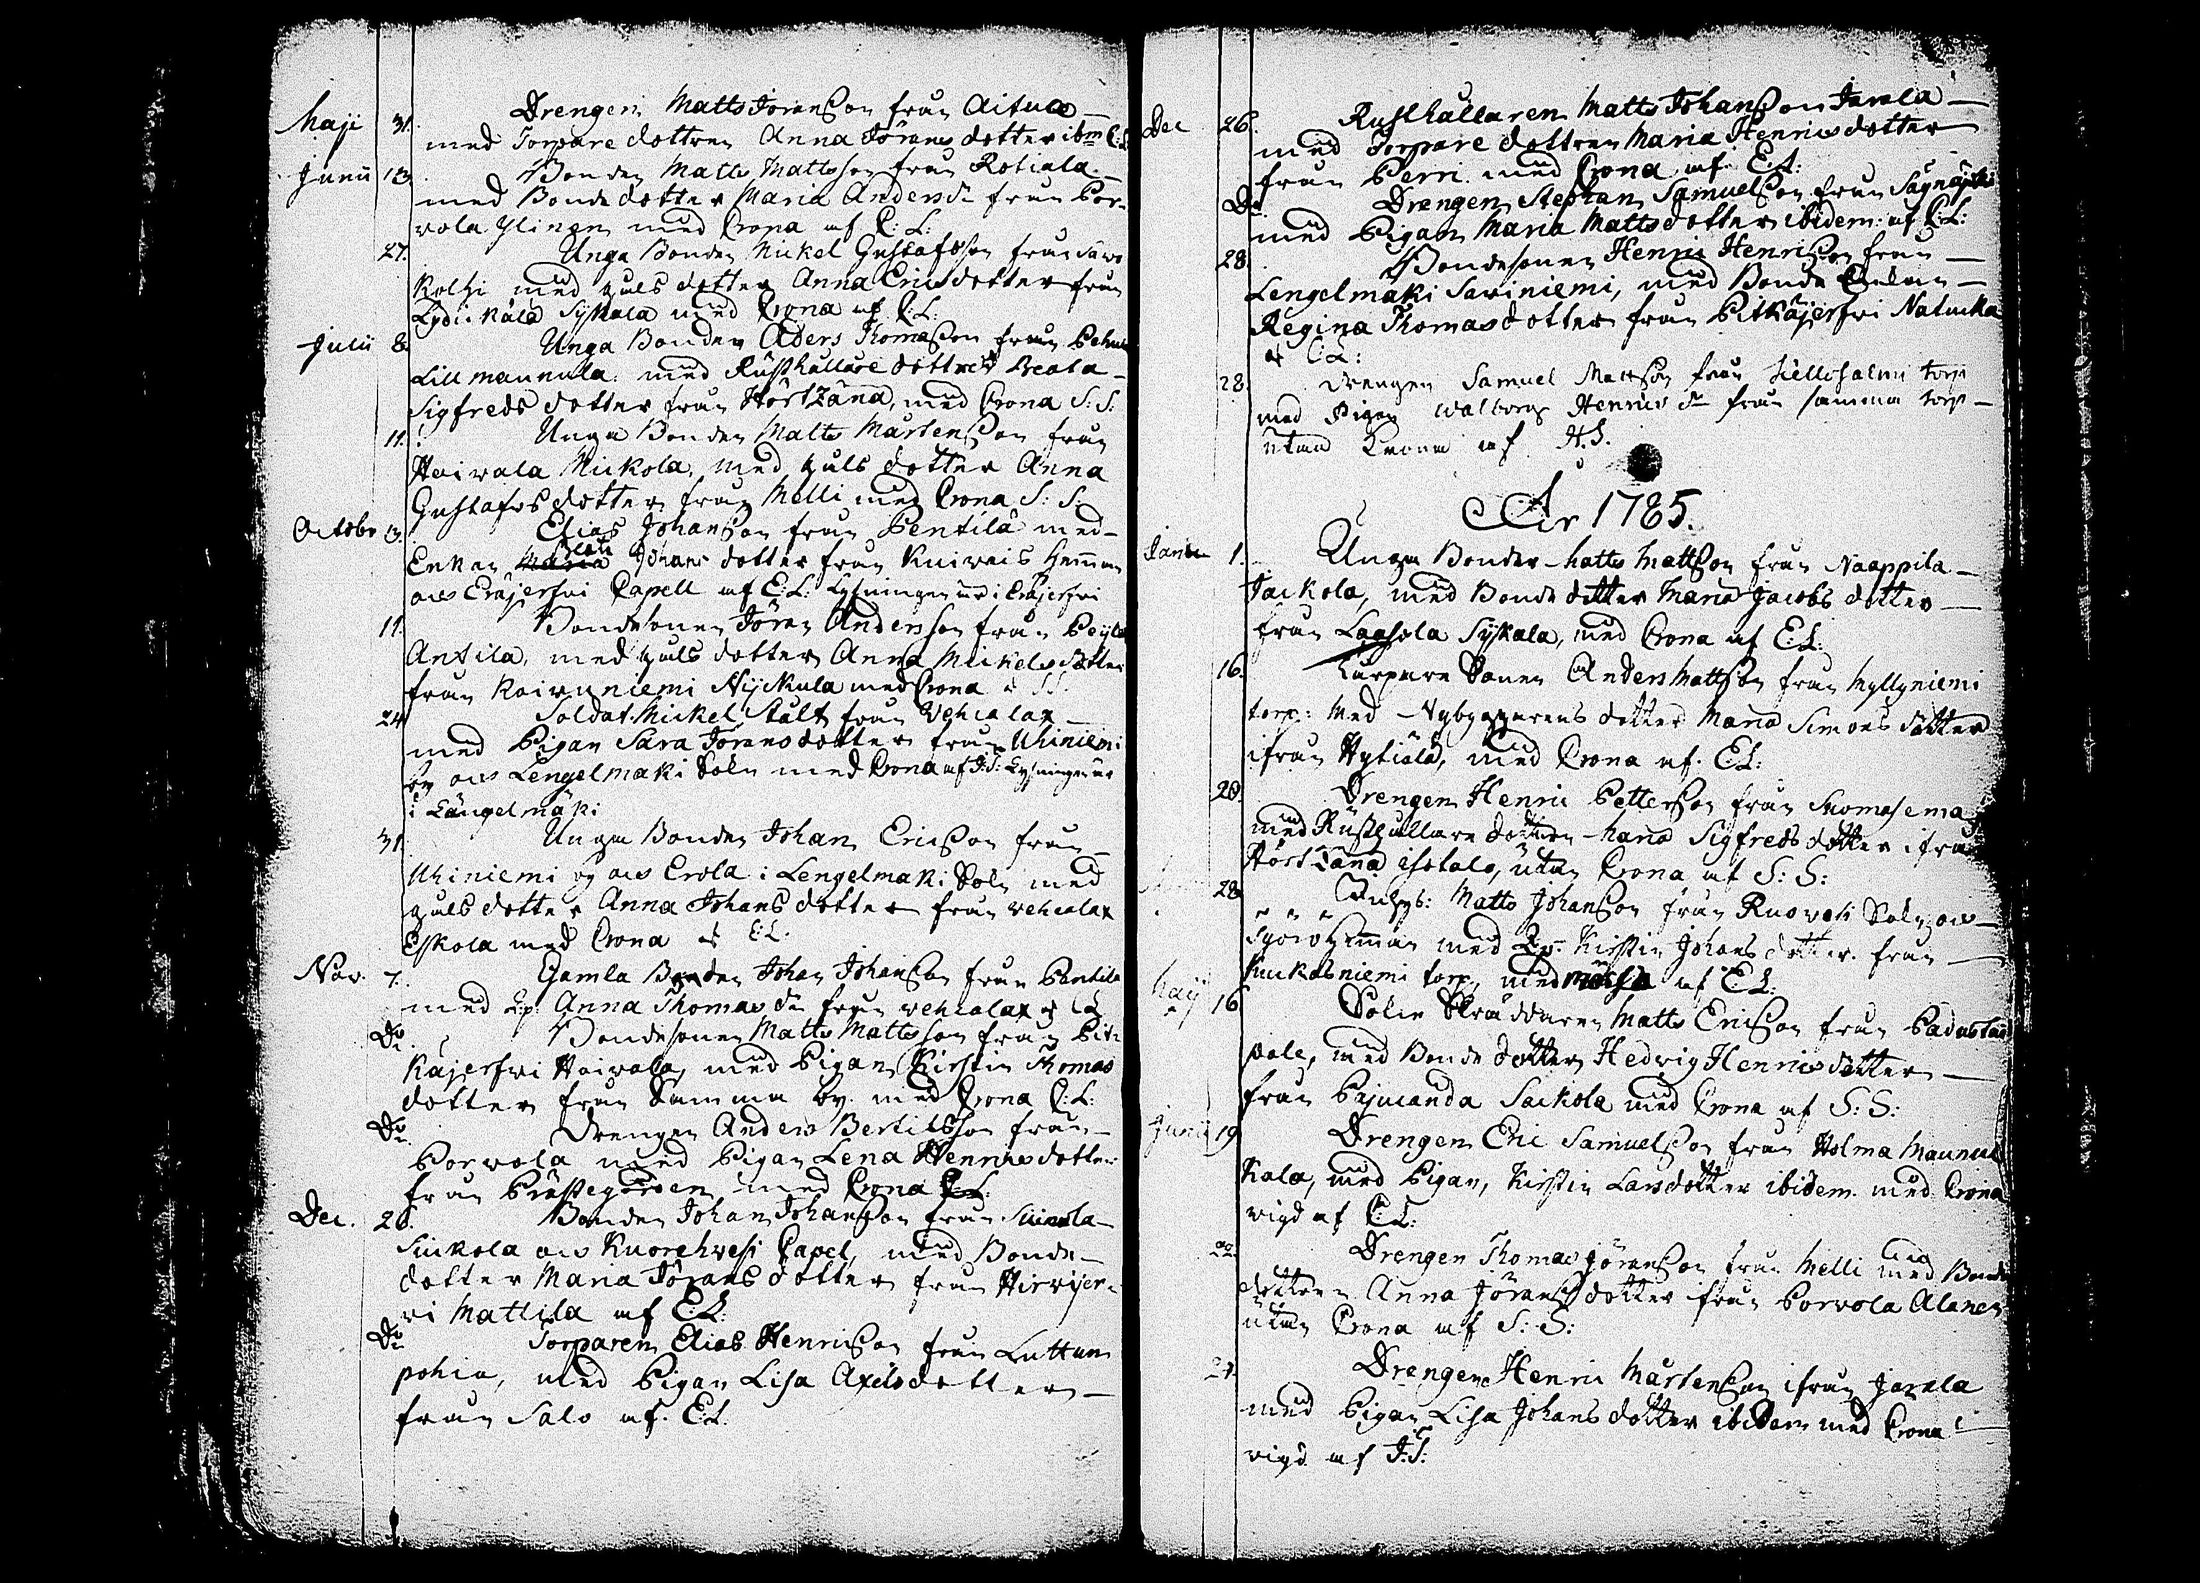 Maji 31. Drengen Matts Jöransson från Aitua
med Torpare dottren Anna Jörans dotter ibm E:L
Junii 13. Bonden Matts Mattsson från Rotiala
med Bonde dotter Maria Andersdr från Por-
vola Ylinen med Crona af E: L:
27. Unga Bonden Mickel Gustafsson från
Kolhi med husb dotter Anna Ericsdotter från
Lydickälä Sykala med Crona af E: L:
Julii 8. Unga Bonden Aders Thomasson från
Lillmaunula med Rusthållare dottren Beata
Sigfreds dotter från Hörtzänä, med Crona S: S:
11. Unga Bonden Matts Mårtensson från
Haivala Mickola, med husb dotter Anna
Gustafvs dotter från Melli med Crona S: S:
Octobr 3. Elias Johansson från Pentilä med
Enkan Beata Johans dotter från Hemman
och Eräjerfvi Capell af E:L: Lysningen är i Eräjerfvi
11. Bondesonen Jöran Andersson från
Antila, med husb dotter Anna Mickelsdotter
från Koivuniemi Nyckula med Crona af S:S:
24. Soldat Mickel Stålt från Vehcalax
med Pigan Sara Jörans dotter från Uhiniemi
by och Lengelmäki Sokn med Crona af J:T: Lysningen är
i Längelmäki
31. Unga Bonden Johan Ericsson från
Uhiniemi by och Erola i Lengelmäki Sokn med
husb dotter Anna Johans dotter från Vehcalax
Eskola med Crona af E:L:
Nov. 7. Gamla Bonden Johan Johansson från Pentilä
med Anna Thomas dr från Vehcalax af E:L
Do Bondesonen Matts Mattsson från Pit-
käjerfvi Haivala, med Pigan Kirstin Thomas
dotter från Samma by med Crona E:L:
Do Drengen Anders Bertilsson från
Porvola med Pigan Lena Henricsdotter
från Prästegården med Crona E:L:
Dec. 26. Bonden Johan Johansson från
Suckola och Kuorehvesi Capel, med Bonde-
dotter Maria Jörans dotter från Hirvijer-
vi Mattila af E:L:
Do Torparen Elias Henricsson från Luttun
pohia, med Pigan Lisa Axelsdotter
från Salo af E:L.
Dec 26. Rusthållaren Matts Johansson Jarala
med Torpare dottren Maria Henricsdotter
från Perri med Crona af E:L:
Do Drengen Stephan Samuelsson från
med Pigan Maria Mattsdotter ibidem: af E:L:
28. Bondesonen Henric Henricsson från
Lengelmäki Saviniemi, med Bonde
Regina Thomasdotter från Pitkäjerfvi Natucka
af E:L:
28. Drengen Samuel Mattsson från Hellosalmi torp
med Pigan Walborg Henrics dr från samma torp
utan Crona af H.S.
År 1785.
Janu 1. Unga Bonden Matts Mattsson från Naappila
Jackola, med Bonde dotter Maria Jacobs dotter
från Laasola Sykala, med Crona af E:L:
16. Torpare Sonen Anders Mattsson från Myllyniemi
torp: med Nybyggarens dotter Maria Simons dotter
ifrån Hytiälä, med Crona af E:L:
20. Drengen Henric Pettersson från Suomasema
med Rusthållare dottren Maria Sigfreds dotter ifrån
Hörtzänä isotalo, utan Crona af S: S:
28. Matts Johansson från Ruovesi Sokn och
Hemman med Kirstin Johans dotter från
niemi torp, med mössa af E:L:
Maij 16 Sokne Skräddaren Matts Ericsson från
pole, med Bonde dotter Hedvig Henricsdotter
från Pajucanda Sarkola med Crona af S: S:
Junii 19 Drengen Eric Samuelsson från Holma Maunu
kala, med Pigan, Kirstin Larsdotter ibidem med Crona
vigd af E:L:
22. Drengen Thomas Jöransson från Melli med Bonde
dottren Anna Jöransdotter ifrån Porvola Alanen
utan Crona af S: S:
24. Drengen Henric Mårtensson ifrån Jarala
med Pigan Lisa Johans dotter ibidem med Crona
vigd af J:T: